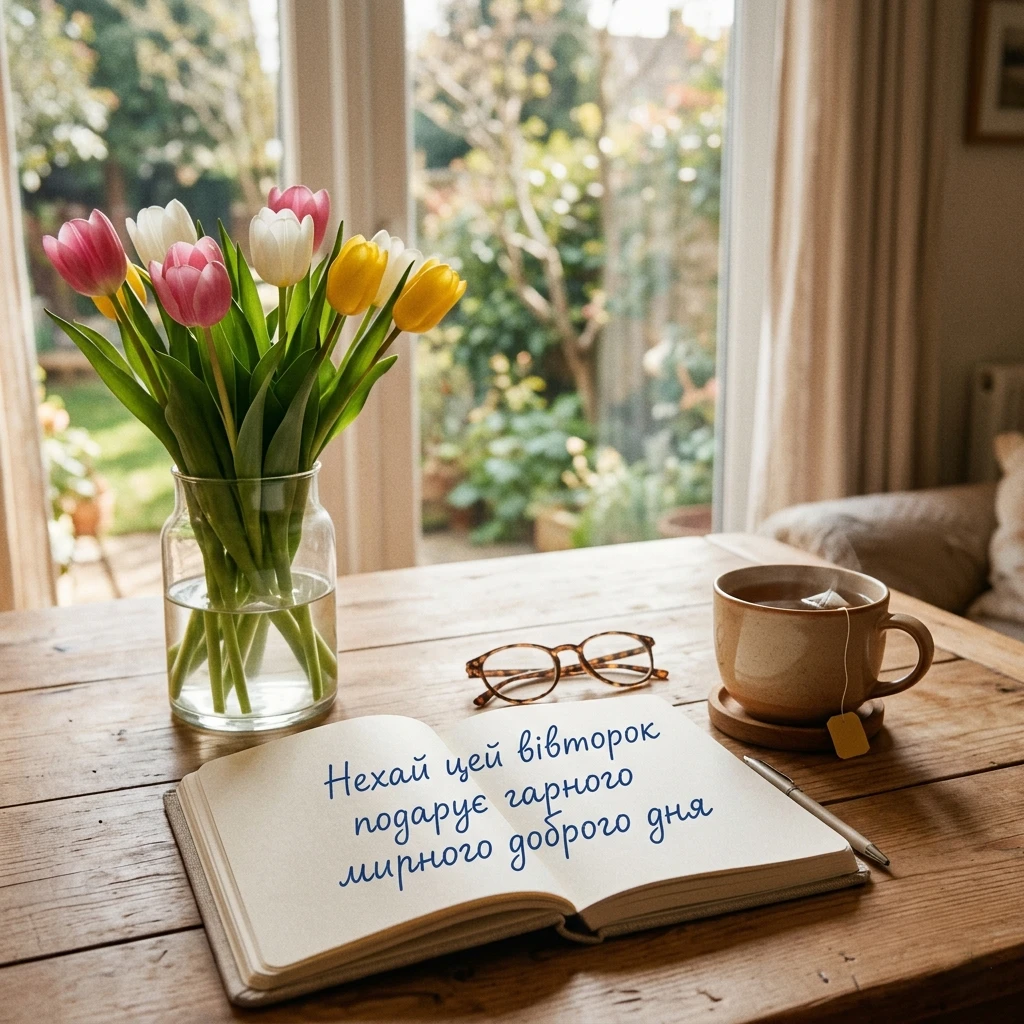 Нехай цей вівторок
подарує гарного
мирного доброго дня